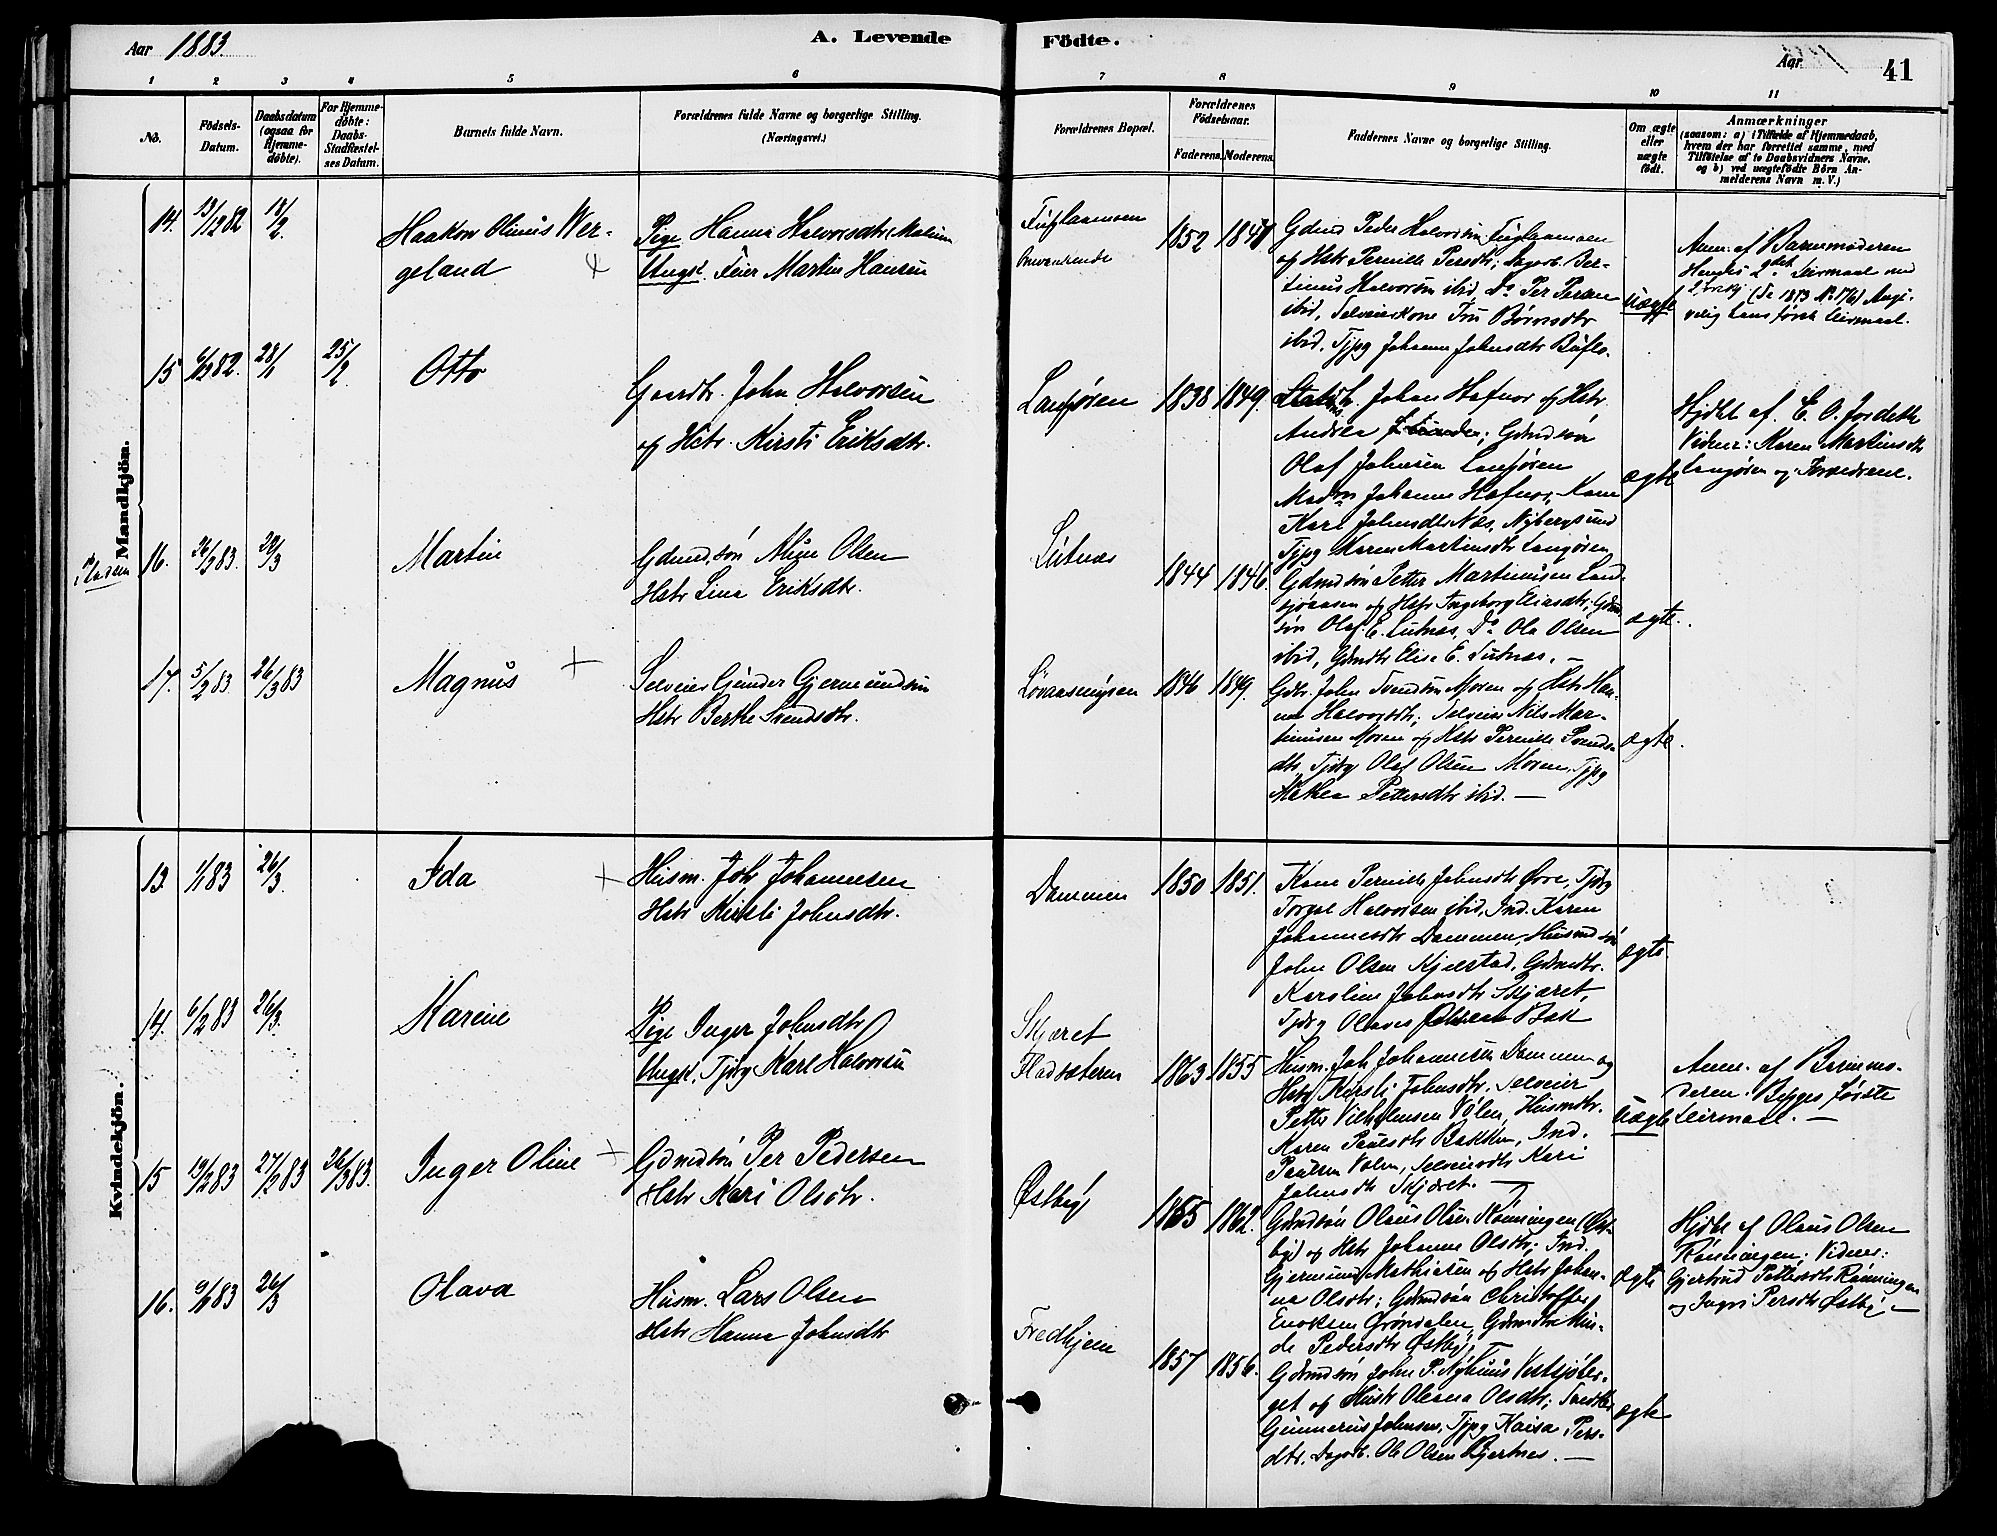 Aar 1883.
A. Levende Födte.
Aar
41
1 2 3 4 5 6 7 8 9 10 11
No.
Födsels-Datum.
Daabsdatum (ogsaa for Hjemme-döbte).
For Hjemme-döbte: Daabs-Stadfæstel-ses Datum.
Barnets fulde Navn.
Forældrenes fulde Navne og borgerlige Stilling. (Næringsvei.)
Forældrenes Bopæl.
Forældrenes Födselsaar.
Faderens. Moderens.
Faddernes Navne og borgerlige Stilling.
Om ægte eller uægte födt.
Anmærkninger
(saasom: a) i Tilfælde af Hjemmedaab, hvem der har forrettet samme, med Tilföielse af to Daabsvidners Navne, og b) ved uægtefödte Börn An-melderens Navn m. V.)
Mandkjön.
14. 13/12 82 18/2.
Haakon Olinus Wer-
geland
Pige Hanna Halvorsdtr
Ungk. Feier Martin Hansen
1852 1841
Gdmd Peder Halvorsen
og Hstr Pernille Persdtr; Dagarb. Ber-
tinus Halvorsen ibid, Do Per Persen
ibid, Selveierkone Siri Börresdtr
ibid, Tjpg Johanne Johnsdtr
uægte
Anm. af Barnemoderen
Hendes 2det Leiermaal med
(Se 1873 No 176) Angi-
velig hans første Leiermaal.
15 82. 28/1 25/2
Otto
Gaardbr. John Halvorsen
og Hstr. Kirsti Eriksdtr.
Langøren 1838 1849.
Johan Hafnor og Hstr.
Andrea Gdmdsön
Olaf Johnsen Langøren
Johanne Hafnor, Kone
Kari Johnsdtr Næs, Nybergsund
Tjpg Karen Martinsdtr Langøren
ægte
Hjdbt af E. O. Jordet
Vidner: Karen Martinsdtr
Langøren og Forældrene.
16. 26/2 83. 29/3
Martin
Gdmdsön Olsen
Hstr Lina Eriksdtr.
Lutnæs
1844 1846.
Gdmdsön Petter Martinusen Land-
sjøaasen og Hstr Ingeborg Eliasdtr; Gdm-
sön Olaf E. Lutnæs, Do Ole Olsen
ibid, Gdmdtr Elise E. Lutnæs. —
ægte.
17. 5/2 83 26/3 83
Magnus
Selveier Gunder Gjermundsen
Hstr Berthe Svendsdtr.
Løvaasmyren 1846 1849.
Gdbr. John Svendsen Moren og Hstr Han-
na Halvorsdtr; Selveier Nils Mar-
tinusen Moren og Hstr Pernille Svends-
dtr, Tjdrg Olaf Olsen Moren, Tjpg
Mathea Pettersdtr ibid. —
ægte.
Kvindekjön.
13. 83 26/3.
Ida
Husm. Joh Johannesen
Hstr Kirsti Johnsdtr.
Dammen 1850 1851.
Kone Pernille Johnsdtr Øvre, Tjdrg
Torgal Halvorsen ibid, Ind. Karen
Johannesdtr Dammen, Husmdsön
John Olsen Kjelstad, Gdmdtr.
Karoline Johnsdtr Skjæret,
Tjdrg Olaves Olsen Bak
ægte
14. 6/2 83 26/3.
Karine
Pige Inger Johnsdtr
Ungk. Tjdrg Karl Halvorsen
Skjæret
Fladsæteren 1863 1855
Husm. Joh Johannesen Dammen og
Hstr Kirsti Johnsdtr. Selveier
Petter Vilhelmsen Volen, Husmdtr.
Karen Paulsdtr Bakken, Ind.
Paulsen Volen, Selveierdtr Kari
Johnsdtr Skjæret. —
Uægte
Anm. af Barnemo-
deren. Begges første
Leiermaal. —
15 19/2 83 27/2 83 26/3 83.
Inger Oline
Gdmdsön Per Pedersen
Hstr Kari Olsdtr.
Østby
1855 1862.
Gdmdsön Olaus Olsen Rønningen (Øst-
by) og Hstr Johanne Olsdtr; Ind.
Gjermund Mathiesen og Hstr Johan-
na Olsdtr; Gdmdsön Christoffer
Enoksen Grøndalen, Gdmdtr
Pedersdtr Østby.
ægte
Hjdbt af Olaus Olsen
Rønningen; Vidner:
Gjertrud Pettersdtr Rønningen
og Ingri Persdtr Østby. —
16. 83 26/3
Olava
Husm. Lars Olsen
Hstr Hanna Johnsdtr
Fredhjem
1857 1856.
Gdmdsön John P. Nyhuus Vestsjøber-
get og Hustr Oleana Olsdtr;
Gunnerius Johnsen, Tjpg Kaisa Pers-
dtr, Dagarb. Ole Olsen Bjertnes. —
ægte